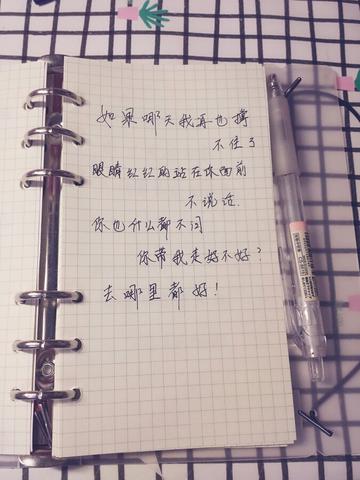 如果哪天我再也撑
不住了
眼睛红红的站在你面前
不说话.
你也什么都不问
你带我走好不好?
去哪里都好!